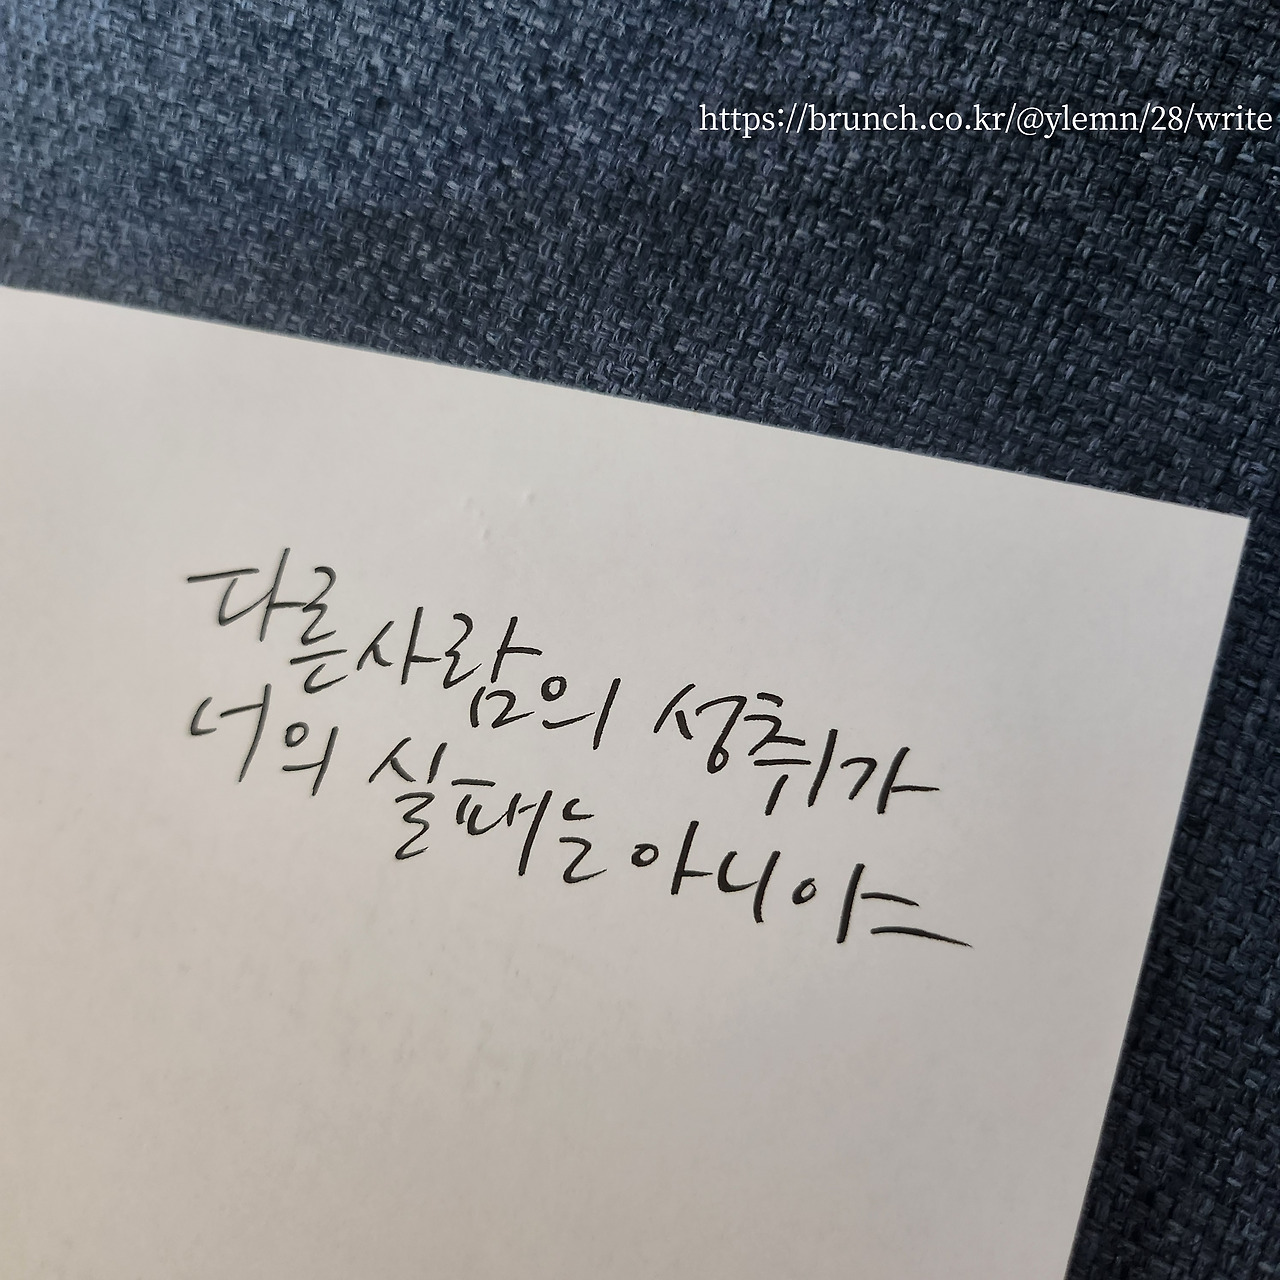 https://brunch.co.kr/@ylemn/28/write
다른사람의 성취가
너의 실패는아니야